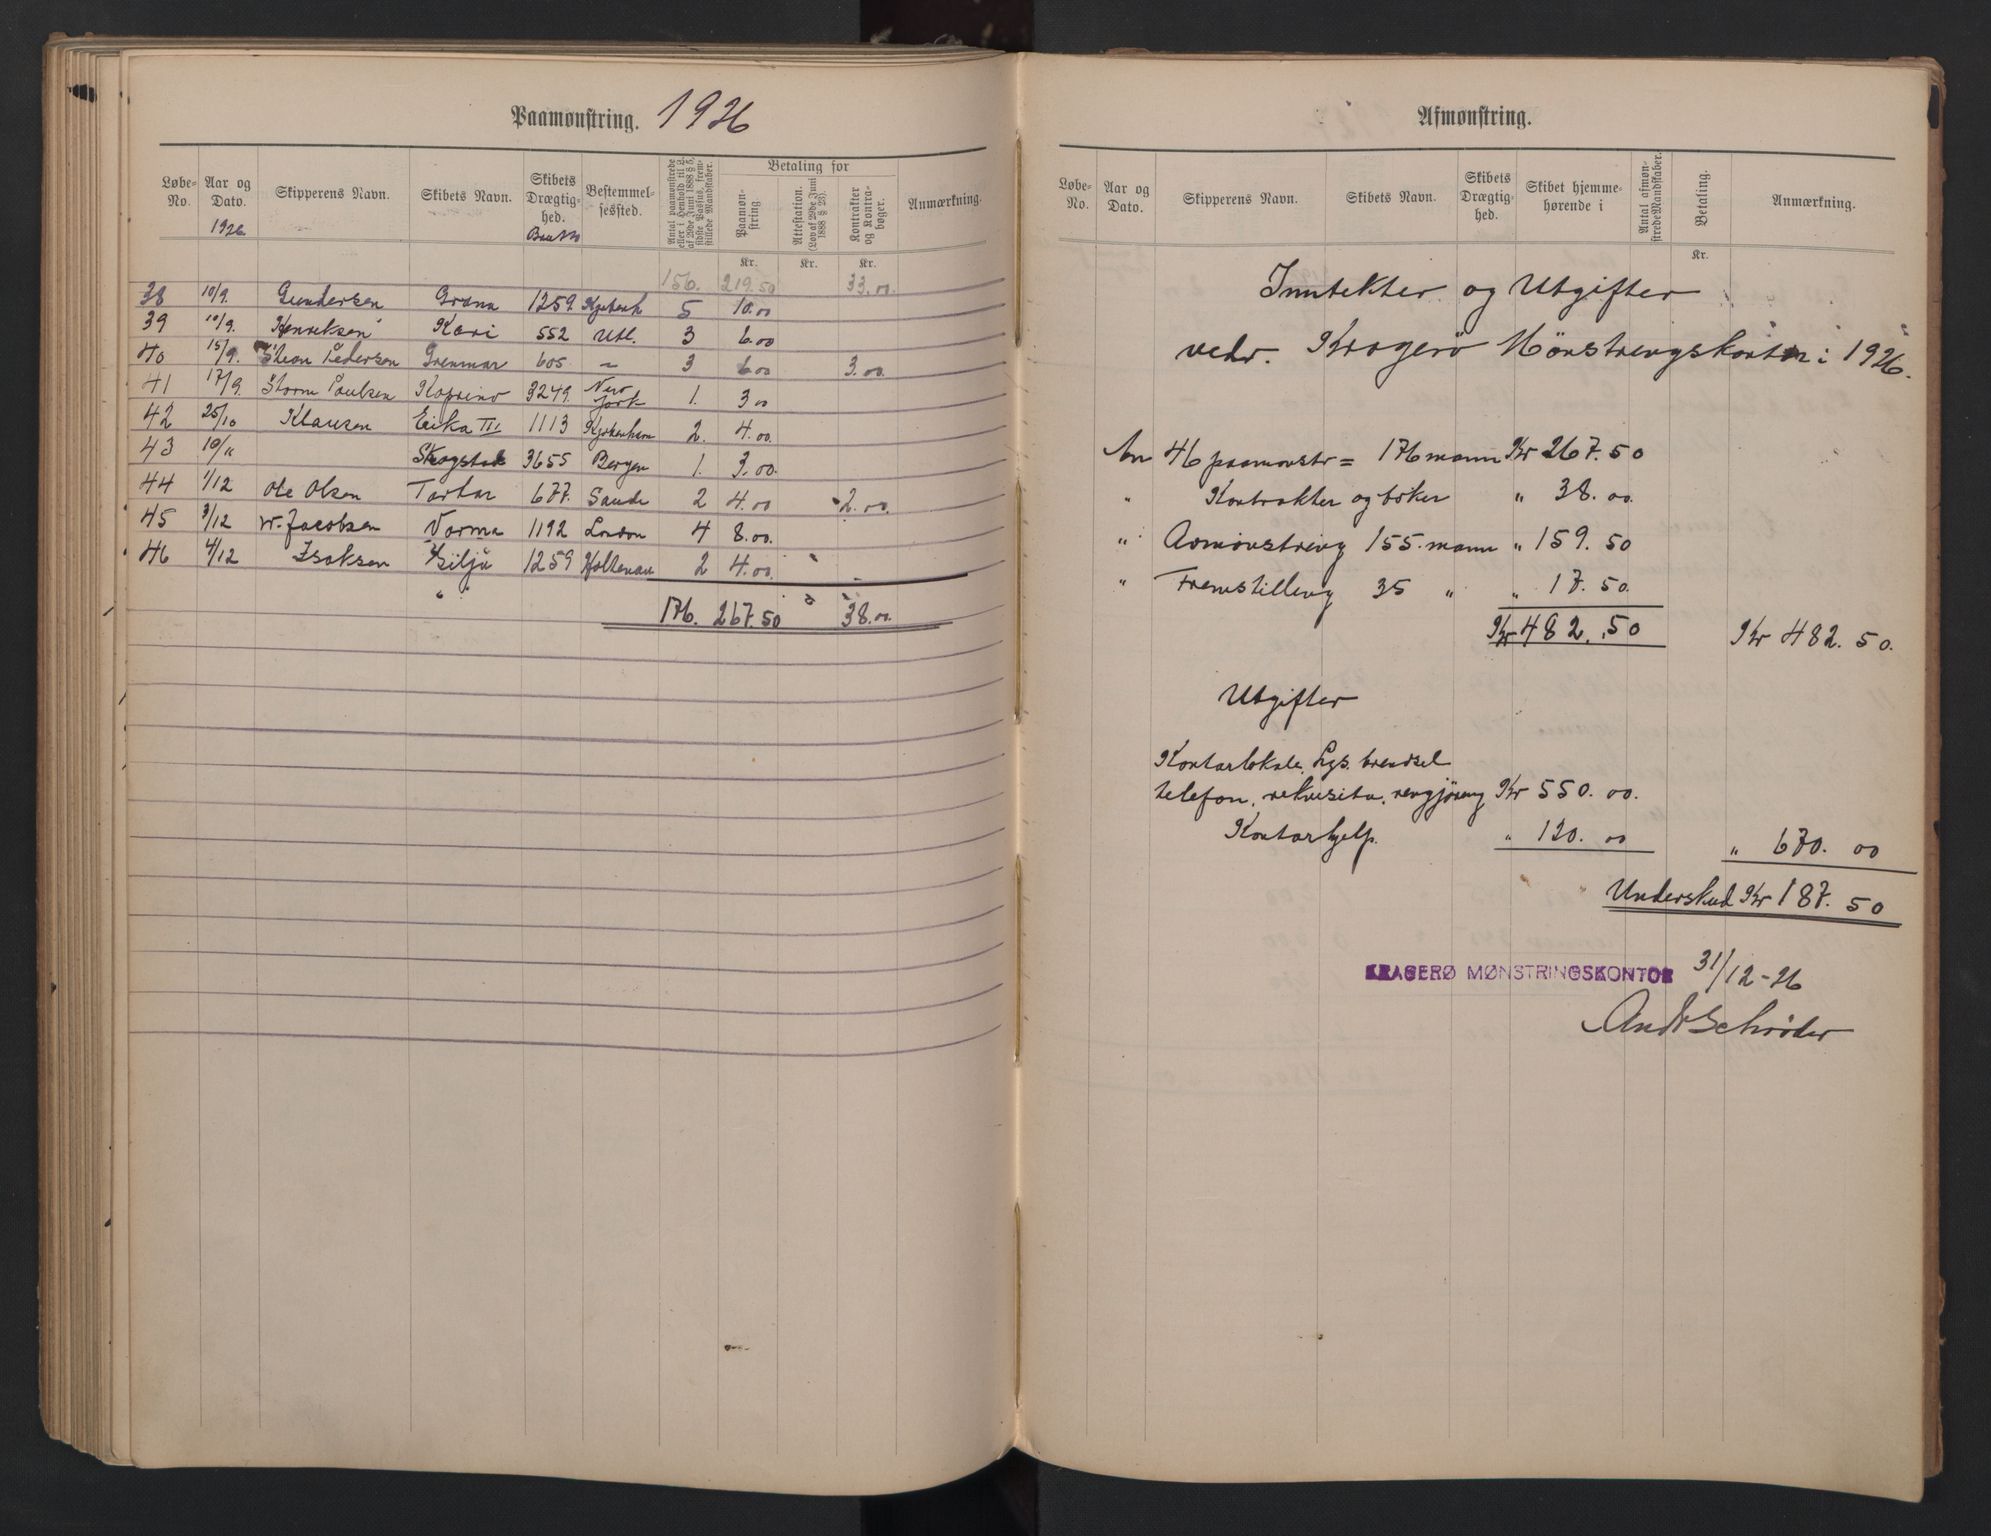 Paamønstring. 1926
Løbe-No. | Aar og Dato. 1926. | Skipperens Navn. | Skibets Navn. | Skibets Drægtighed. Brutto | Bestemmelsessted. | Antal paamønstrede eller i Henhold til L. af 29de Juni 1888 § 5, sidste Passus, fremstillede Mandskaber. | Betaling for Paamønstring. Kr. | Attestation. (Lov af 29de Juni 1888 § 23). Kr. | Kontrakter og Kontrabøger. Kr. | Anmærkning.
156. 219.50 33.00
38 10/9. Gundersen Grana 1259. Kjøbenh 5 10.00
39 10/9. Henriksen Kari 552 Utl. 3 6.00
40 15/9. Pedersen Grenmar 605 — 3 6.00 3.00.
41 17/9. Storm Paulsen 3249. New York 1. 3.00
42 25/10 Klausen Erika III 1113 Kjøbenhavn 2. 4.00.
43 10/11 Skogstad 3655 Bergen 1. 3.00.
44 1/12 Ole Olsen Tartar 677. Sande 2 4.00 2.00.
45 3/12 W. Jacobsen Varma 1192 London 4 8.00.
46 4/12 Isaksen Silja 1259 Holtenau 2 4.00
176. 267.50 38.00.
Afmønstring.
Løbe-No. | Aar og Dato. | Skipperens Navn. | Skibets Navn. | Skibets Drægtighed. | Skibet hjemmehørende i | Antal afmønstrede Mandskaber. | Betaling. Kr. | Anmærkning.
Inntekter og Utgifter
vedr. Kragerö Mönstringskontor i 1926.
An 46 paamönstr = 176 mann Kr 267.50
" Kontrakter og böker " 38.00.
" Avmönstring 155. mann " 159.50
" Fremstilling 35 " " 17.50.
Kr 482.50 Kr 482.50.
Utgifter
Kontorlokale, Lys. brendsel
telefon, rekvisita, rengjöring Kr 550.00.
Kontorhjelp. " 120.00 " 670.00
Underskud Kr 187.50
KRAGERØ MØNSTRINGSKONTOR 31/12-26
And Schrøder